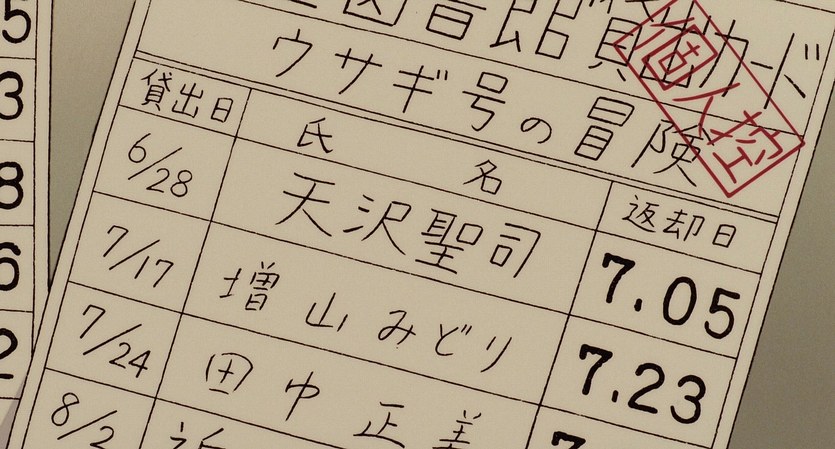 図書館貸出カード
個人控
ウサギ号の冒険
貸出日 氏名 返却日
6/28 天沢聖司 7.05
7/17 増山みどり 7.23
7/24 田中正美
8/2
5
3
8
6
2